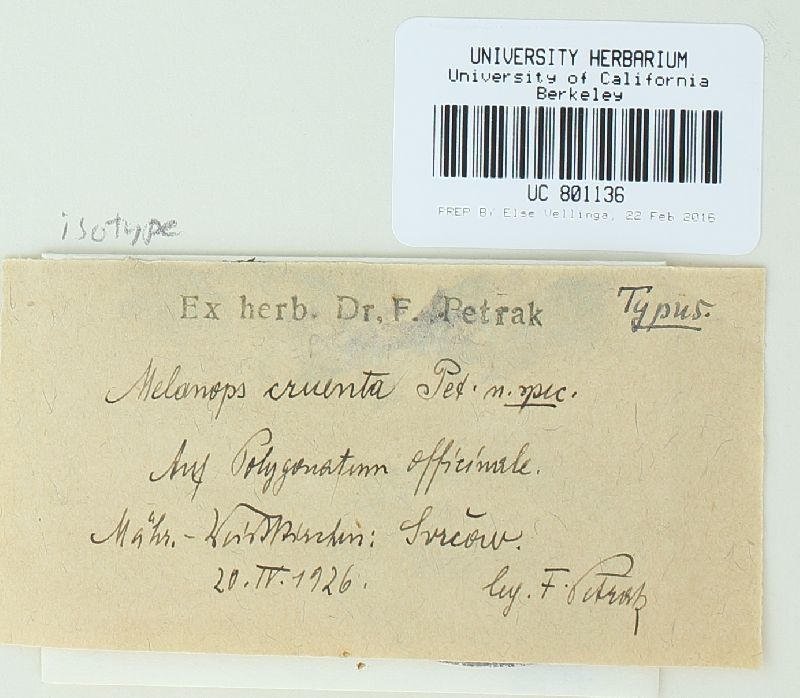 UNIVERSITY HERBARIUM
University of California
Berkeley
UC 801136
PREP BY Else Vellinga, 22 Feb 2016
isotype
Ex herb. Dr. F. Petrak
Typus.
Melanops cruenta Pet. n. spec.
Auf Polygonatum officinale.
Mähr.-Weisskirchen: Svrčow.
20.IV.1926.
leg. F. Petrak